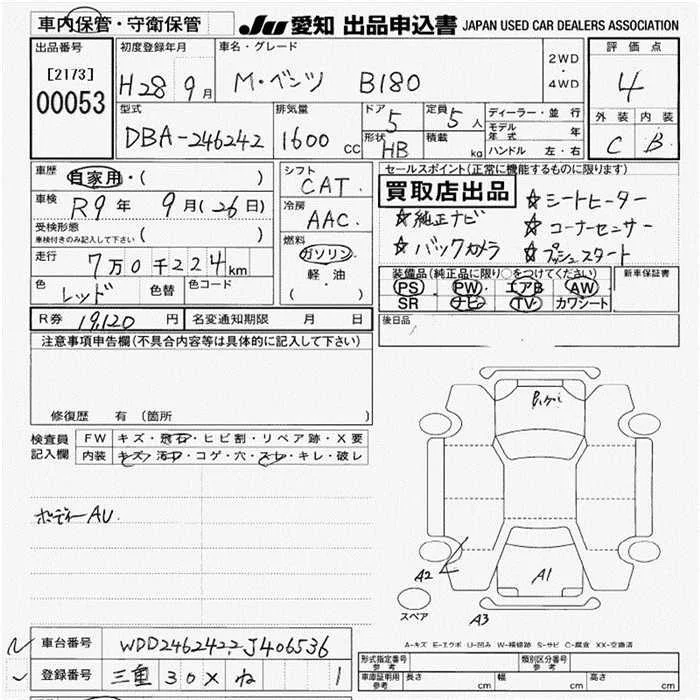 車内保管・守衛保管
JU 愛知 出品申込書 JAPAN USED CAR DEALERS ASSOCIATION
出品番号
[2173]
00053
初度登録年月
H28 9月
車名・グレード
M・ベンツ B180
2WD
・
4WD
評価点
4
外装 内装
C B
型式
DBA-246242
排気量
1600 CC
ドア
5
形状
HB
定員
5 人
積載
kg
ディーラー・並行
モデル年式 年
ハンドル 左・右
車歴
自家用・( )
車検
R9年 9月(26日)
受検形態
車検付きのみ記入して下さい ( )
走行
7万0千224km
色
レッド
色替
色コード
シフト
CAT
冷房
AAC
燃料
ガソリン
軽・油
( )
セールスポイント(正常に機能するものに限ります)
買取店出品
☆シートヒーター
☆純正ナビ
☆コーナーセンサー
☆バックカメラ
☆プッシュスタート
装備品(純正品に限り○をつけてください)
PS PW エアB AW
SR ナビ TV カワシート
新車保証書
R券 19,120 円
名変通知期限 月 日
後日品
注意事項申告欄(不具合内容等は具体的に記入して下さい)
修復歴 有(箇所 )
検査員記入欄
FW キズ・飛石・ヒビ割・リペア跡・X要
内装 キズ・汚れ・コゲ・穴・スレ・キレ・破レ
ボディーAU.
A2
A1
A3
スペア
A-キズ E-エクボ U-凹み W-補修跡 S-サビ C-腐食 XX-交換済
車台番号
登録番号 三重 30X ね 1
形式指定番号
参考
類別区分番号
参考
車庫証明用
参考
長さ cm
幅 cm
高さ cm